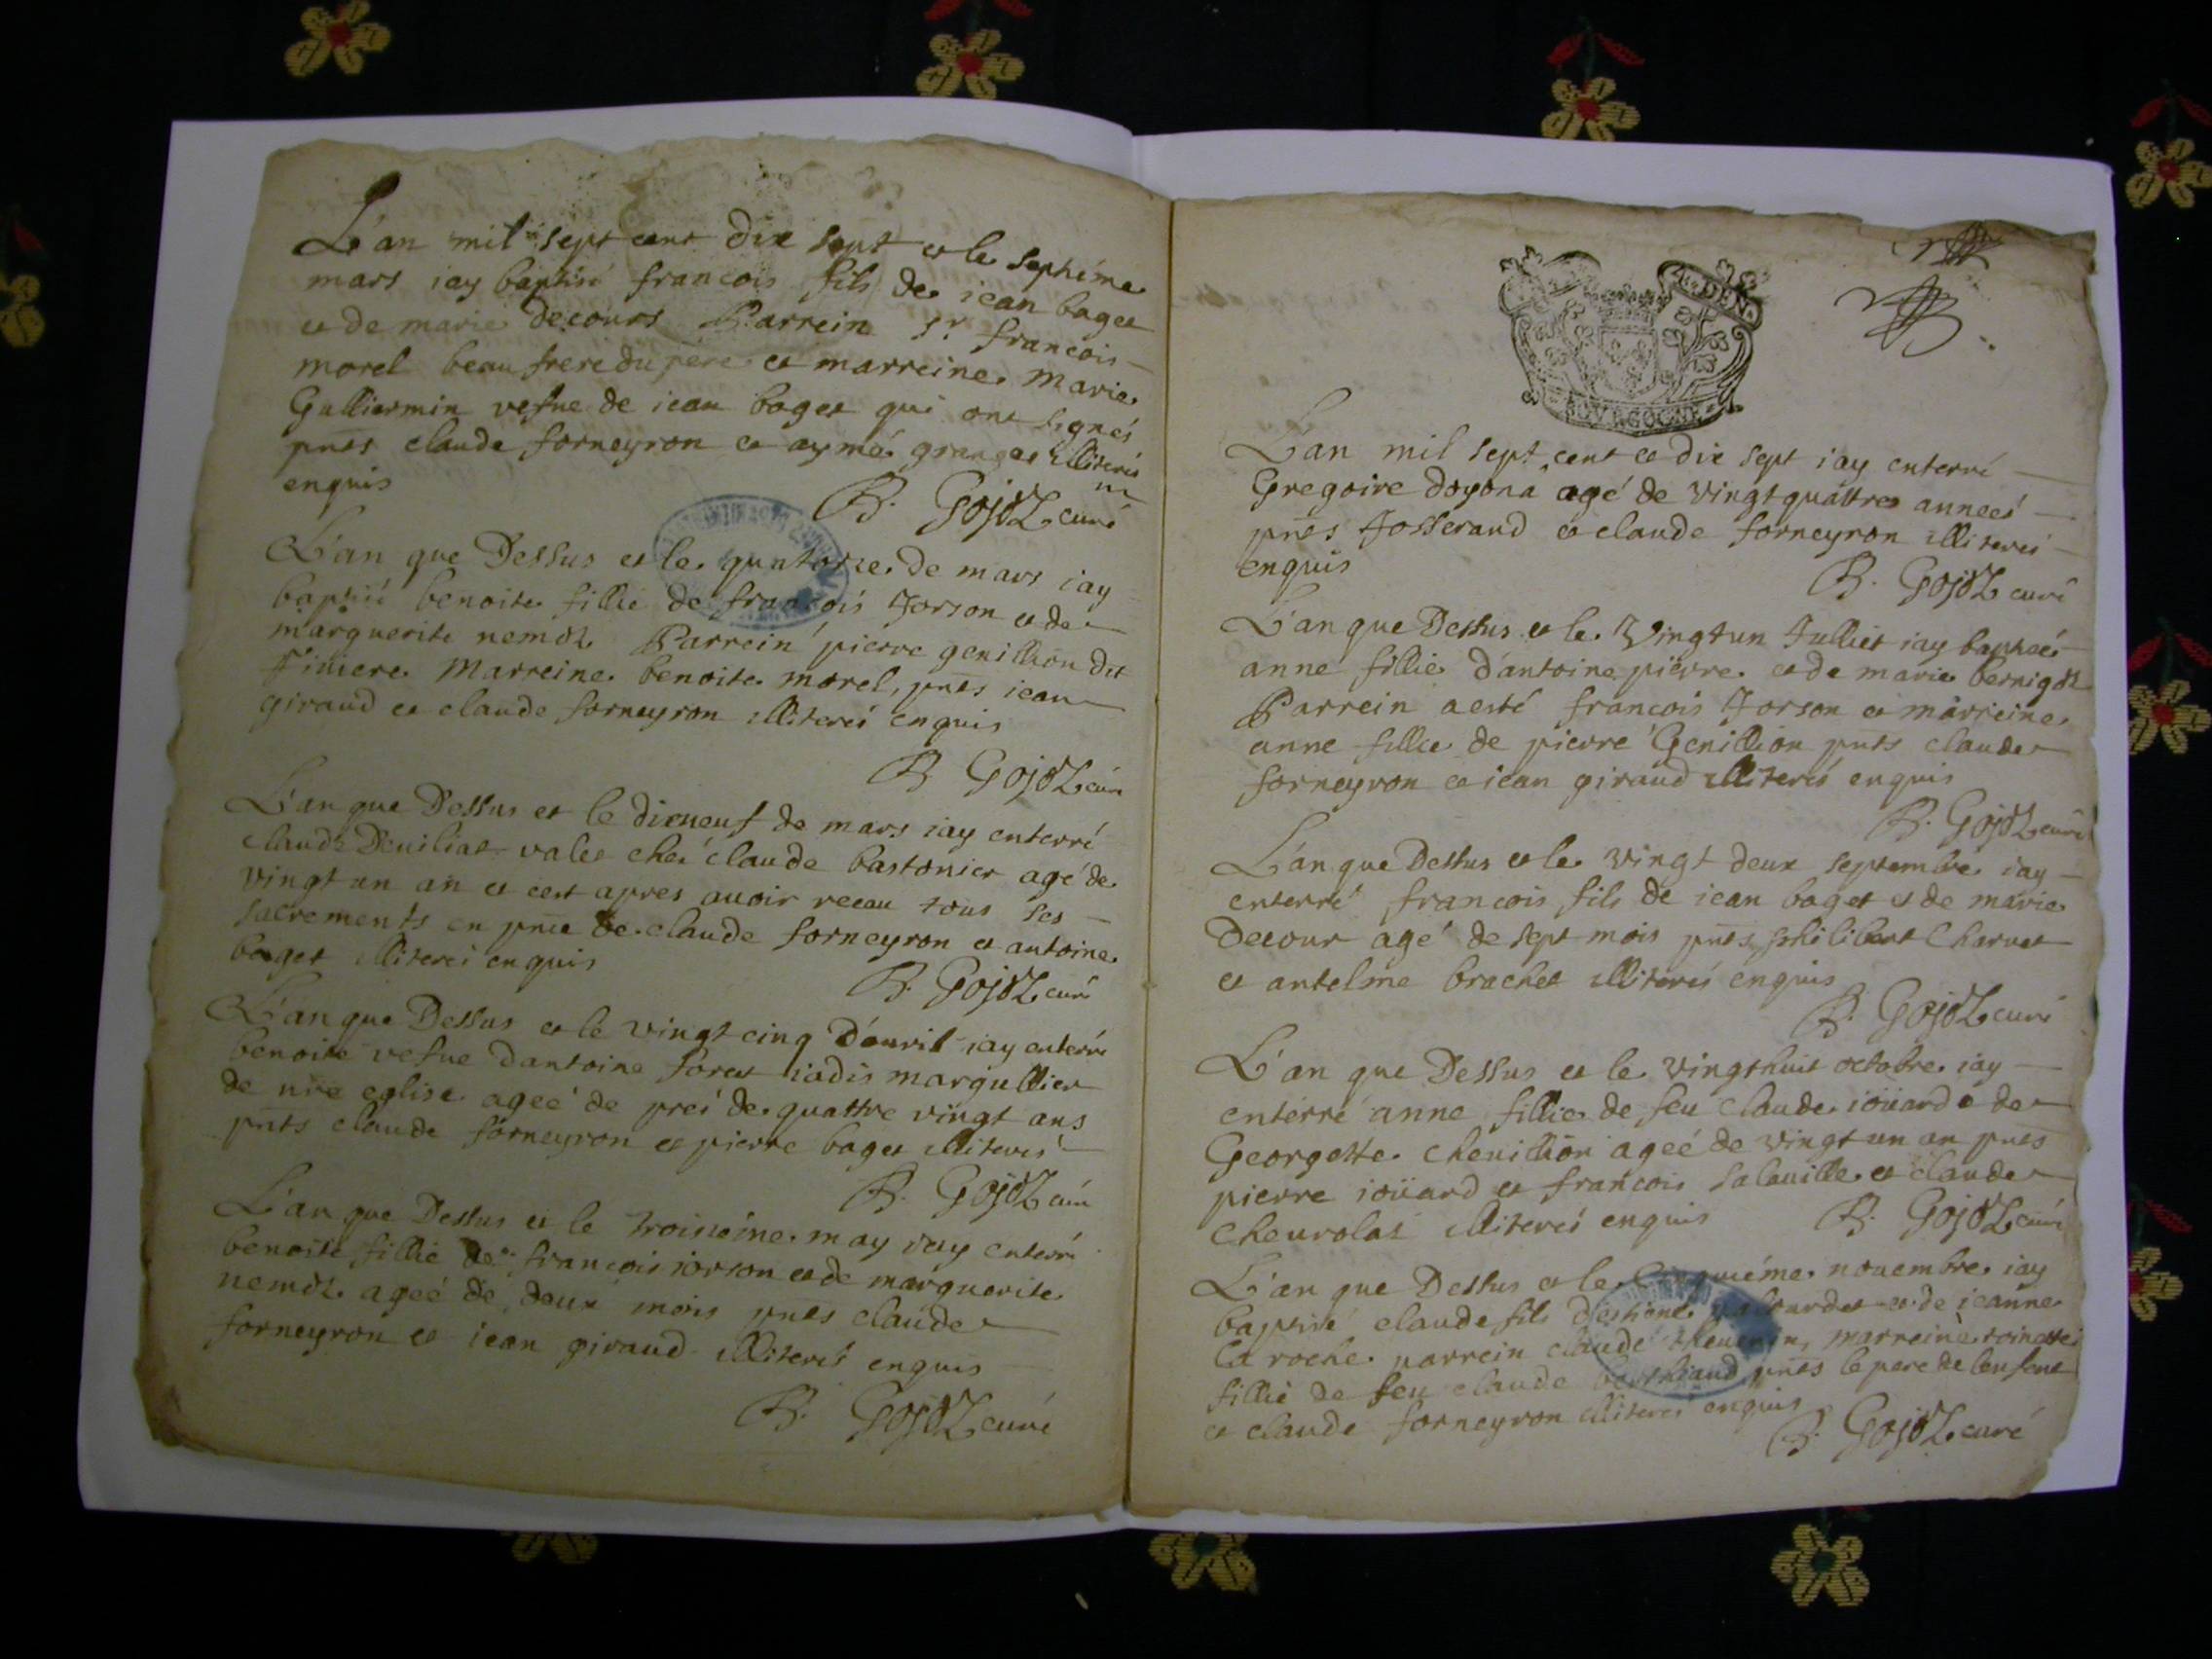 L'an mil sept cent dix sept et le septiéme
mars iay baptisé francois fils de iean baget
et de marie decours Parrein sr. francois
morel beau frere du pere et marreine marie
Gulliermin vefue de iean baget qui ont signés
pnts claude forneyron et aymé granger illiterés
enquis
B. Gojoz curé
L'an que Dessus et le quatorze de mars iay
baptisé benoite fillie de francois Jorson et de
marguerite nemoz Parrein pierre genillion dit
Marreine benoite morel, pnts iean
giraud et claude forneyron illiterés enquis
B Gojoz curé
L'an que Dessus et le dixneuf de mars iay enterré
claude Deuiliat valet ché claude bastonier agé de
vingt un an et cest apres auoir receu tous ses
sacrements en pnce de claude forneyron et antoine
baget illiteréi enquis
B. Gojoz curé
L'an que Dessus et le vingt cinq d'auril iay enterré
benoite vefue dantoine foret iadis margullier
de nre eglise ageé de prés de quattre vingt ans
pnts claude forneyron et pierre baget illiterés
B. Gojoz curé
L'an que Dessus et le troisiéme may iay enterré
benoite fillie de francois iorson et de marguerite
nemoz ageé de deux mois pnts claude
forneyron et iean giraud illiterés enquis
B. Gojoz curé
DEN.
BOURGOGNE
L'an mil sept cent et dix sept iay enterré
Gregoire doyona agé de vingt quattre anneés
pnts Josserand et claude forneyron illiterés
enquis
B. Gojoz curé
L'an que Dessus et le vingt un Julliet iay baptisé
anne fillie d'antoine pierre et de marie bernigoz
Parrein a esté francois Jorson et marreine
anne fillie de pierre Genillion pnts claude
forneyron et iean giraud illiterés enquis
B. Gojoz curé
L'an que Dessus et le vingt deux septembre iay
enterré francois fils de iean baget et de marie
Decour agé de sept mois pnts philibert Charuet
et antelme brachet illiterés enquis
B. Gojoz curé
L'an que Dessus et le vingt huit octobre iay
enterré anne fillie de feu claude ioüard e de
Georgette chenillion ageé de vingt un an pnts
pierre ioüard et francois salauille et claude
cheurolat illiterés enquis
B. Gojoz curé
L'an que Dessus et le quiéme nouembre iay
baptisé claude fils d'estiene et de ieanne
la roche parrein claude marreine toinette
fillie de feu claude berthiaud pnts le pere de lenfent
et claude forneyron illiterés enquis
B. Gojoz curé